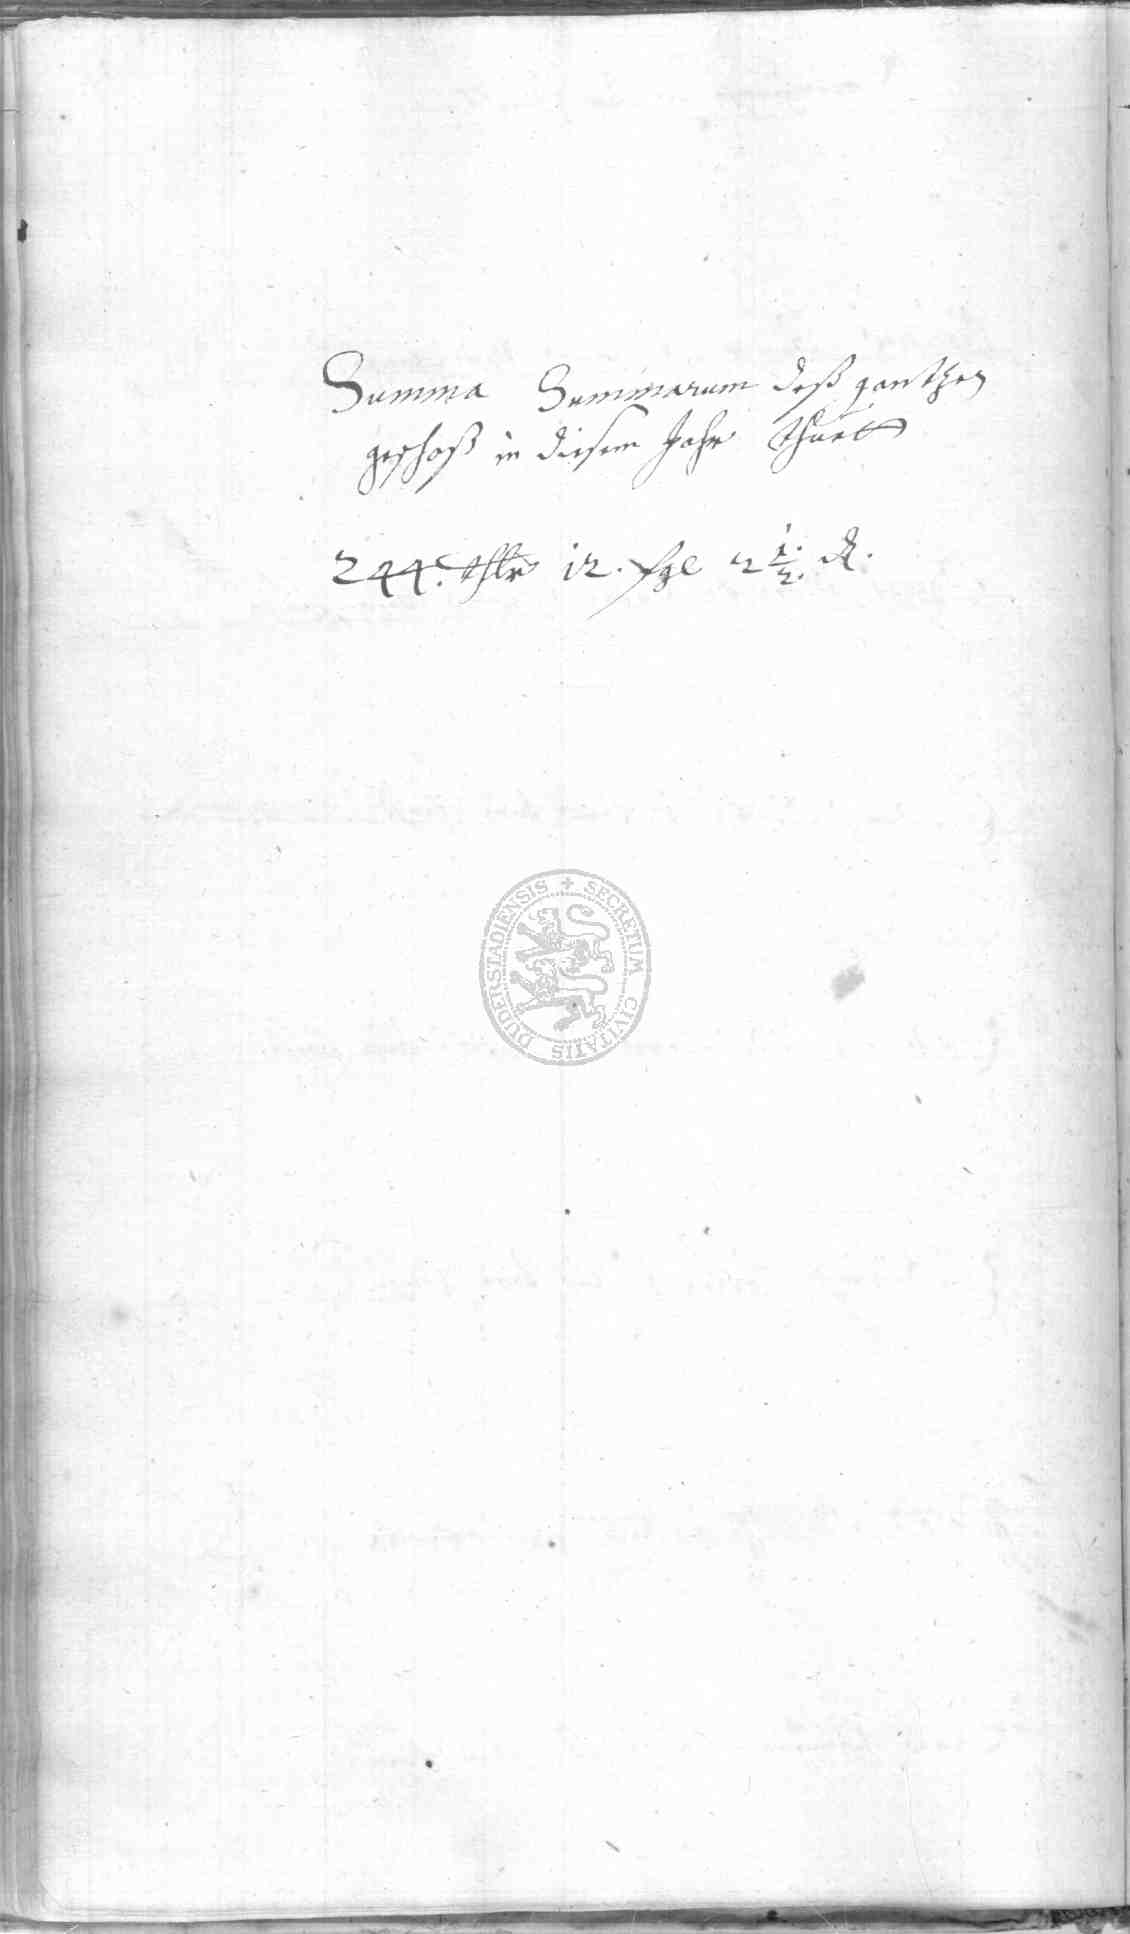 Summa Summarum deß gantzen
geschoß in diesem Jahr thuet
244. thlr 12. ßgl 2 1/2. ₰.
SECRETUM CIVITATIS DUDERSTADIENSIS